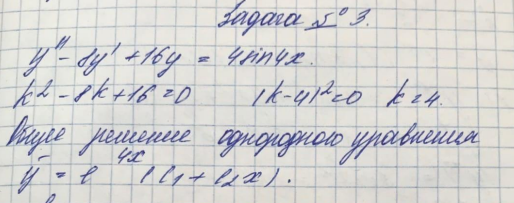 Задача № 3.
y'' - 8y' + 16y = 4sin4x.
k² - 8k + 16 = 0 (k-4)² = 0 k = 4.
Общее решение однородного уравнения
ȳ = e^4x (C₁ + C₂x).